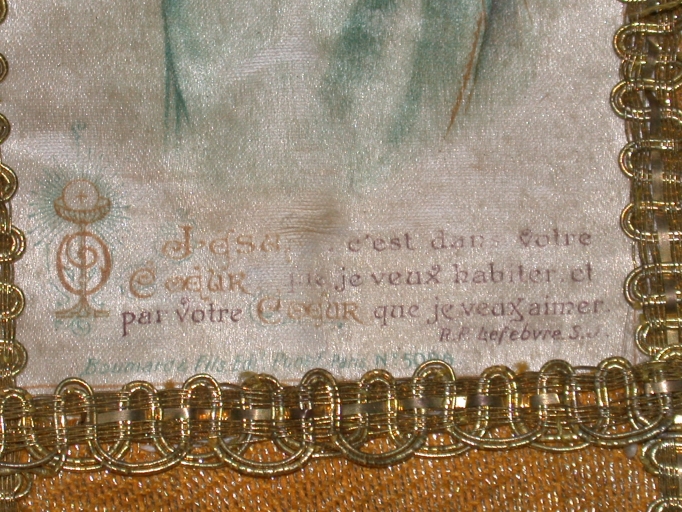 O Jésu, c'est dans Votre
Coeur que je veux habiter, et
par Votre Coeur que je veux aimer.
R.P. Lefebvre S.J.
Boumard & Fils Edit. Pontf. Paris N° 5088